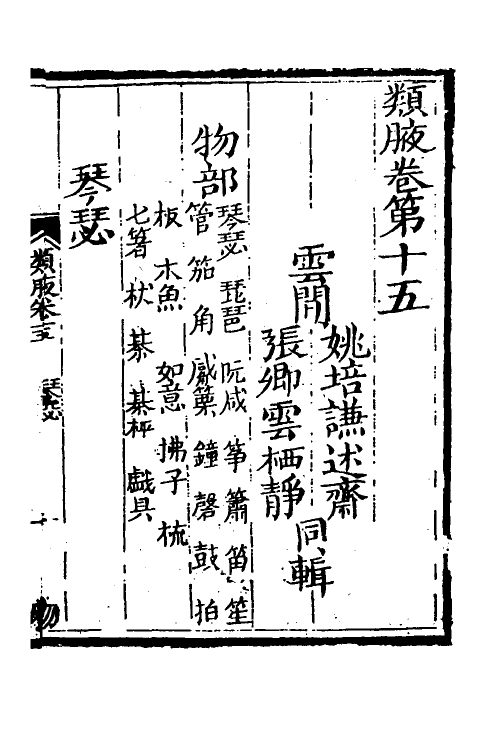 類腋卷第十五
雲間
姚培謙述齋
張卿雲栖靜
同輯
物部
琴瑟 琵琶 阮咸 箏 簫 笛 笙
管 笳 角 觱篥 鐘 磬 鼓 拍
板 木魚 如意 拂子 梳
七箸 杖 棊 棊枰 戲具
琴瑟
類腋卷十五
琴瑟
一
物